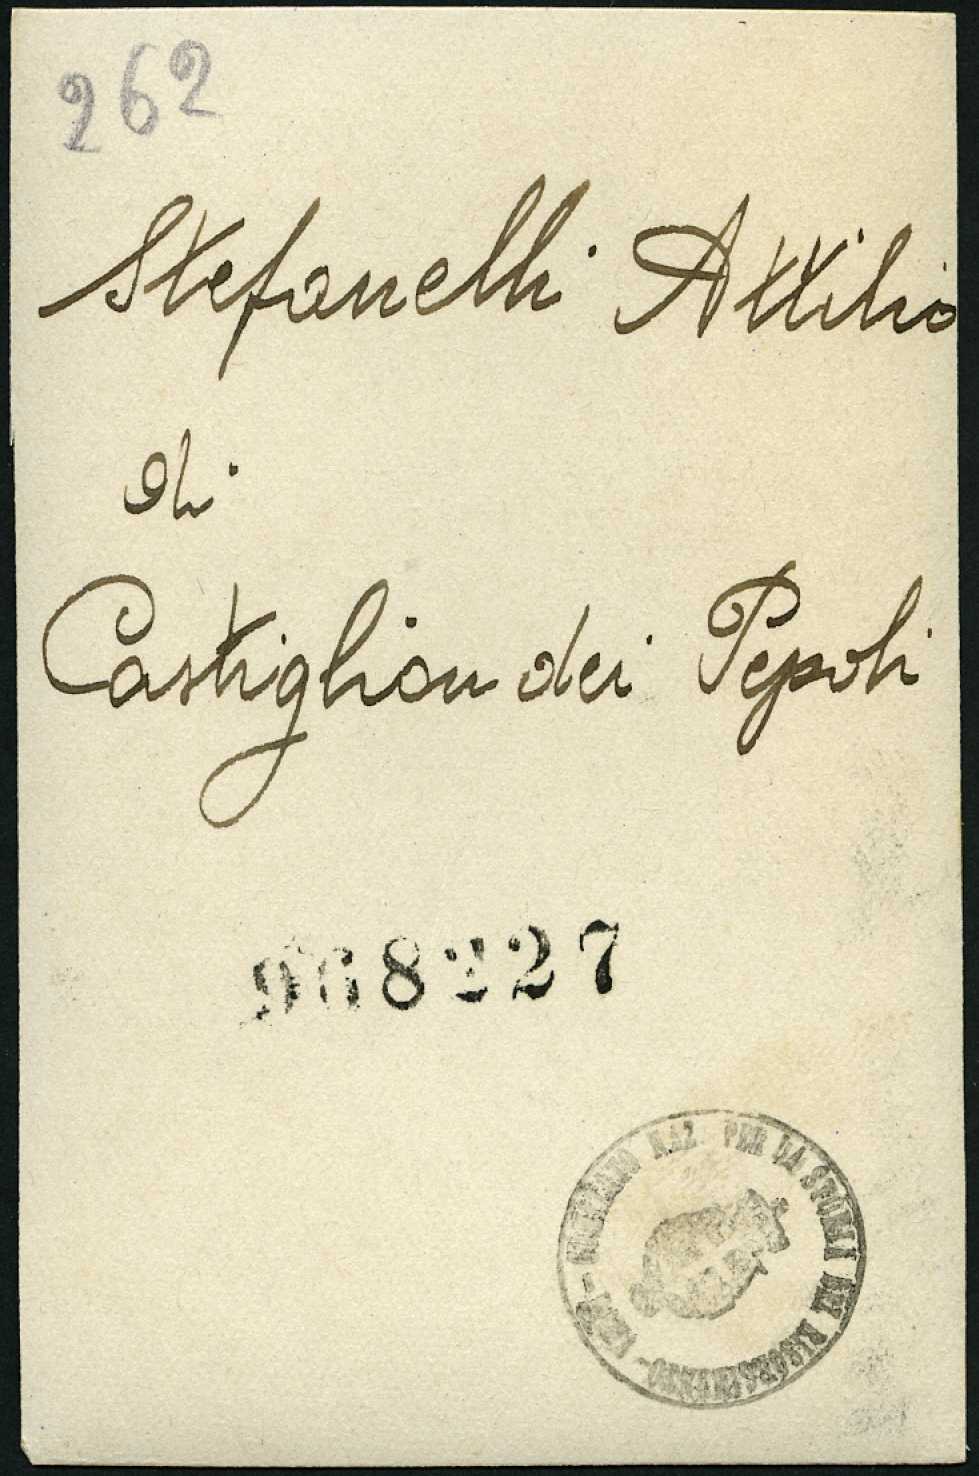 262
Stefanelli Attilio
di
Castiglion dei Pepoli
968227
COMITATO NAZ. PER LA STORIA DEL RISORGIMENTO